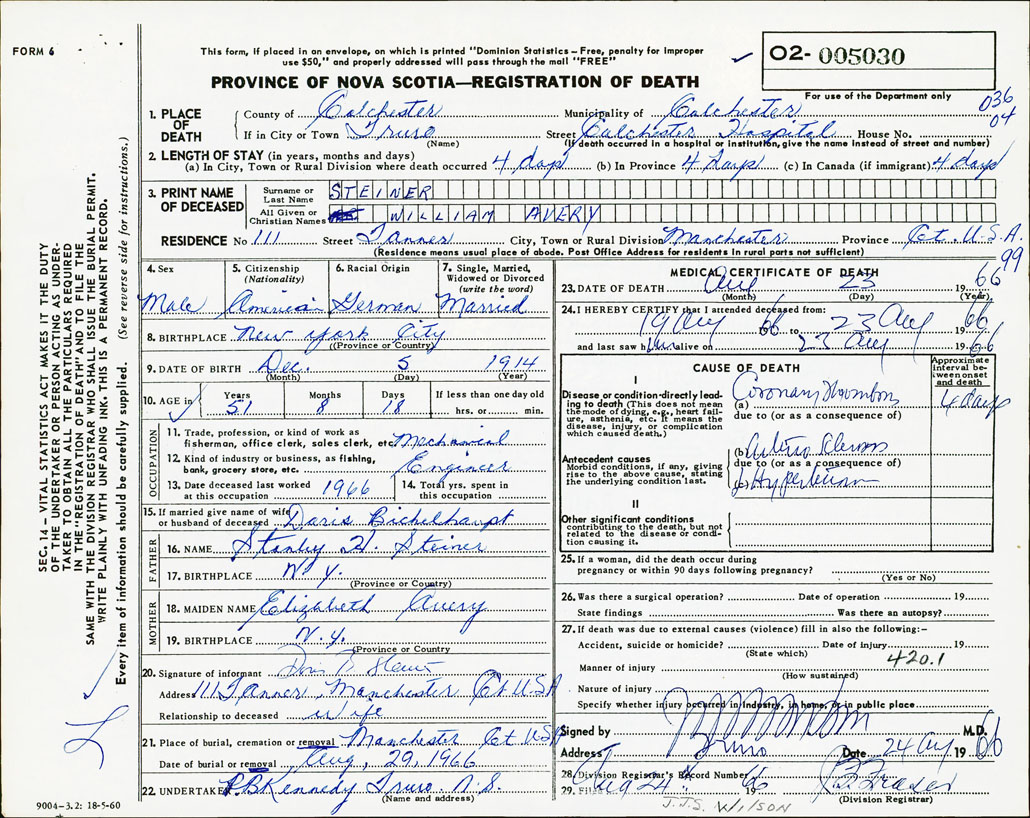 FORM 6
This form, if placed in an envelope, on which is printed "Dominion Statistics – Free, penalty for improper
use $50," and properly addressed will pass through the mail "FREE"
02- 005030
PROVINCE OF NOVA SCOTIA—REGISTRATION OF DEATH
For use of the Department only
036
04
1. PLACE OF DEATH
County of Colchester Municipality of Colchester
If in City or Town Truro (Name) Street Colchester Hospital House No.
(If death occurred in a hospital or institution, give the name instead of street and number)
2. LENGTH OF STAY (in years, months and days)
(a) In City, Town or Rural Division where death occurred 4 days (b) In Province 4 days (c) In Canada (if immigrant) 4 days
3. PRINT NAME OF DECEASED
Surname or Last Name STEINER
All Given or Christian Names WILLIAM AVERY
RESIDENCE No 111 Street Tanner City, Town or Rural Division Manchester Province Ct. U.S.A.
(Residence means usual place of abode. Post Office Address for residents in rural parts not sufficient)
99
4. Sex Male
5. Citizenship (Nationality) America
6. Racial Origin German
7. Single, Married, Widowed or Divorced (write the word) Married
8. BIRTHPLACE New York City
(Province or Country)
9. DATE OF BIRTH Dec. 5 1914
(Month) (Day) (Year)
10. AGE in Years 51 Months 8 Days 18 If less than one day old hrs. or min.
OCCUPATION
11. Trade, profession, or kind of work as
fisherman, office clerk, sales clerk, etc. Mechanical
12. Kind of industry or business, as fishing,
bank, grocery store, etc. Engineer
13. Date deceased last worked at this occupation 1966
14. Total yrs. spent in this occupation
15. If married give name of wife
or husband of deceased Doris Bichelhaupt
FATHER
16. NAME Stanley H. Steiner
17. BIRTHPLACE N.Y.
(Province or Country)
MOTHER
18. MAIDEN NAME Elizabeth Avery
19. BIRTHPLACE N.Y.
(Province or Country
20. Signature of informant Doris B. Steiner
Address 111 Tanner, Manchester Ct USA
Relationship to deceased wife
21. Place of burial, cremation or removal Manchester Ct USA
Date of burial or removal Aug, 29, 1966
22. UNDERTAKER P.B Kennedy Truro N.S.
(Name and address)
MEDICAL CERTIFICATE OF DEATH
23. DATE OF DEATH Aug 23 1966
(Month) (Day) (Year)
24. I HEREBY CERTIFY that I attended deceased from:
19 Aug 66 to 23 Aug 1966
and last saw him alive on 23 Aug 1966
CAUSE OF DEATH
Approximate interval between onset and death
I
Disease or condition directly leading to death (This does not mean the mode of dying, e.g., heart failure, asthenia, etc. It means the disease, injury, or complication which caused death.)
(a) Coronary Thrombosis 4 days
due to (or as a consequence of)
Antecedent causes
Morbid conditions, if any, giving rise to the above cause, stating the underlying condition last.
(b) Arterio Sclerosis
due to (or as a consequence of)
(c) Hypertension
II
Other significant conditions
contributing to the death, but not related to the disease or condition causing it.
25. If a woman, did the death occur during
pregnancy or within 90 days following pregnancy?
(Yes or No)
26. Was there a surgical operation? Date of operation 19
State findings Was there an autopsy?
27. If death was due to external causes (violence) fill in also the following:–
Accident, suicide or homicide? Date of injury 19
(State which)
420.1
Manner of injury
(How sustained)
Nature of injury
Specify whether injury occurred in industry, in home, or in public place
Signed by M.D.
Address Truro Date 24 Aug 1966
28. Division Registrar's Record Number
29. Filed Aug 24 1966
(Division Registrar)
J.J.S. WILSON
SEC. 14 – VITAL STATISTICS ACT MAKES IT THE DUTY
OF THE UNDERTAKER OR PERSON ACTING AS UNDER-
TAKER TO OBTAIN ALL THE PARTICULARS REQUIRED
IN THE "REGISTRATION OF DEATH" AND TO FILE THE
SAME WITH THE DIVISION REGISTRAR WHO SHALL ISSUE THE BURIAL PERMIT.
WRITE PLAINLY WITH UNFADING INK. THIS IS A PERMANENT RECORD.
Every item of information should be carefully supplied. (See reverse side for instructions.)
9004–3.2: 18-5-60